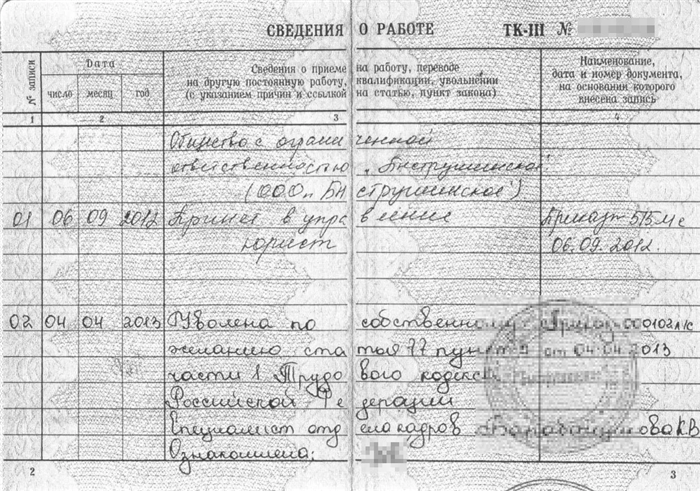 СВЕДЕНИЯ О РАБОТЕ ТК-III №
№ записи
Дата
число месяц год
Сведения о приеме на работу, переводе
на другую постоянную работу, квалификации, увольнении
(с указанием причин и ссылкой на статью, пункт закона)
Наименование,
дата и номер документа,
на основании которого
внесена запись
1 2 3 4
Общество с ограниченной
ответственностью
(ООО
01 06 09 2012 Принят в управление Приказ 515 л/с
юрист 06.09.2012.
02 04 04 2013 Уволена по собственному Приказ 000102 л/с
желанию статья 77 пункт 3 от 04.04.2013
части 1 Трудового кодекса
Российской Федерации
Специалист отдела кадров
Ознакомлена:
2 3